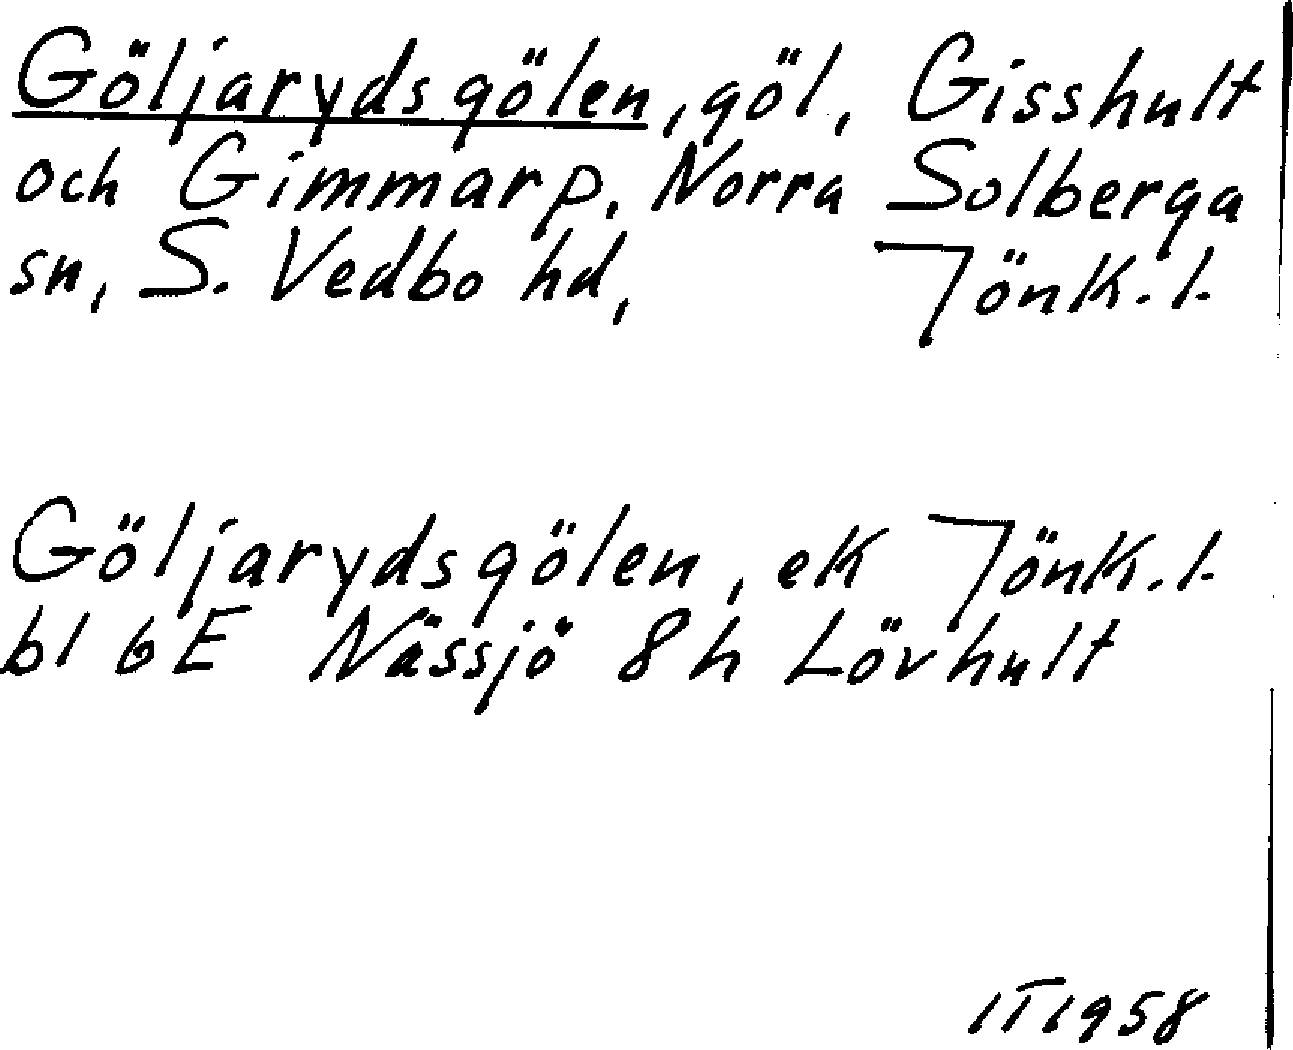 Göljarydsgölen, göl, Gisshult
och Gimmarp, Norra Solberga
sn, S. Vedbo hd, Jönk. l.
Göljarydsgölen, ek Jönk. l.
bl 6E Nässjö 8h Lövhult
1958